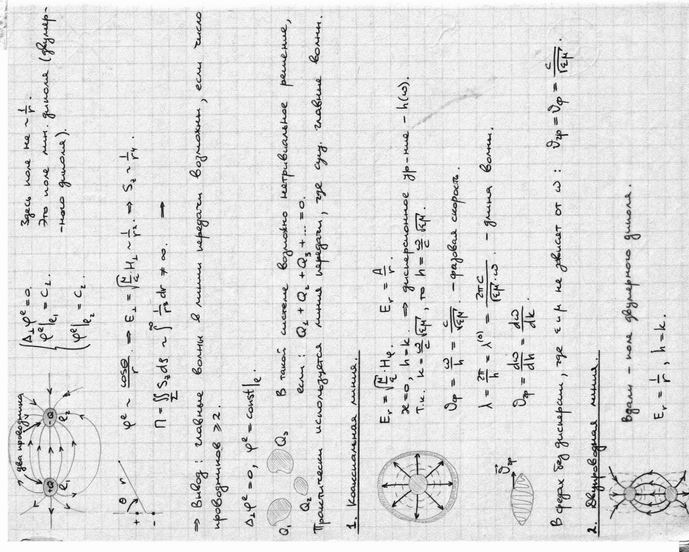 два проводника
+Q
-Q
e₁
e₂
{ Δ⊥φᵉ = 0.
φᵉ|e₁ = C₁.
φᵉ|e₂ = C₂.
Здесь поле не ~ 1/r.
Это поле лин. диполя (двумер-
-ного диполя).
θ
r
φᵉ ~ cosθ/r ⇒ E⊥ = √(μ/ε) H⊥ ~ 1/r² ⇒ S₂ ~ 1/r⁴.
П = ∬ S₂ dS ~ ∫ 1/r³ dr ≠ ∞. →
⇒ Вывод: главные волны в линии передачи возможны, если число
проводников ≥ 2.
Δ⊥φᵉ = 0, φᵉ = const|e.
Q₁
Q₂
Q₃
В такой системе возможно нетривиальное решение,
если: Q₁ + Q₂ + Q₃ + ... = 0.
Практически используется линия передачи, где сущ. главные волны.
1. Коаксиальная линия.
Eᵣ = √(μ/ε) · Hφ. Eᵣ = A/r.
ϰ = 0, h = k ⇒ дисперсионное ур-ние - h(ω).
Т.к. k = ω/c √εμ, то h = ω/c √εμ.
Vф = ω/h = c/√εμ. - фазовая скорость.
λ = 2π/h = λ⁽⁰⁾ = 2πc/(√εμ · ω). - длина волны.
Vгр = dω/dh = dω/dk.
Vгр
В средах без дисперсии, где ε, μ не зависят от ω : Vгр = Vф = c/√εμ.
2. Двухпроводная линия.
Вдали - поле двумерного диполя.
Eᵣ = 1/r, h = k.